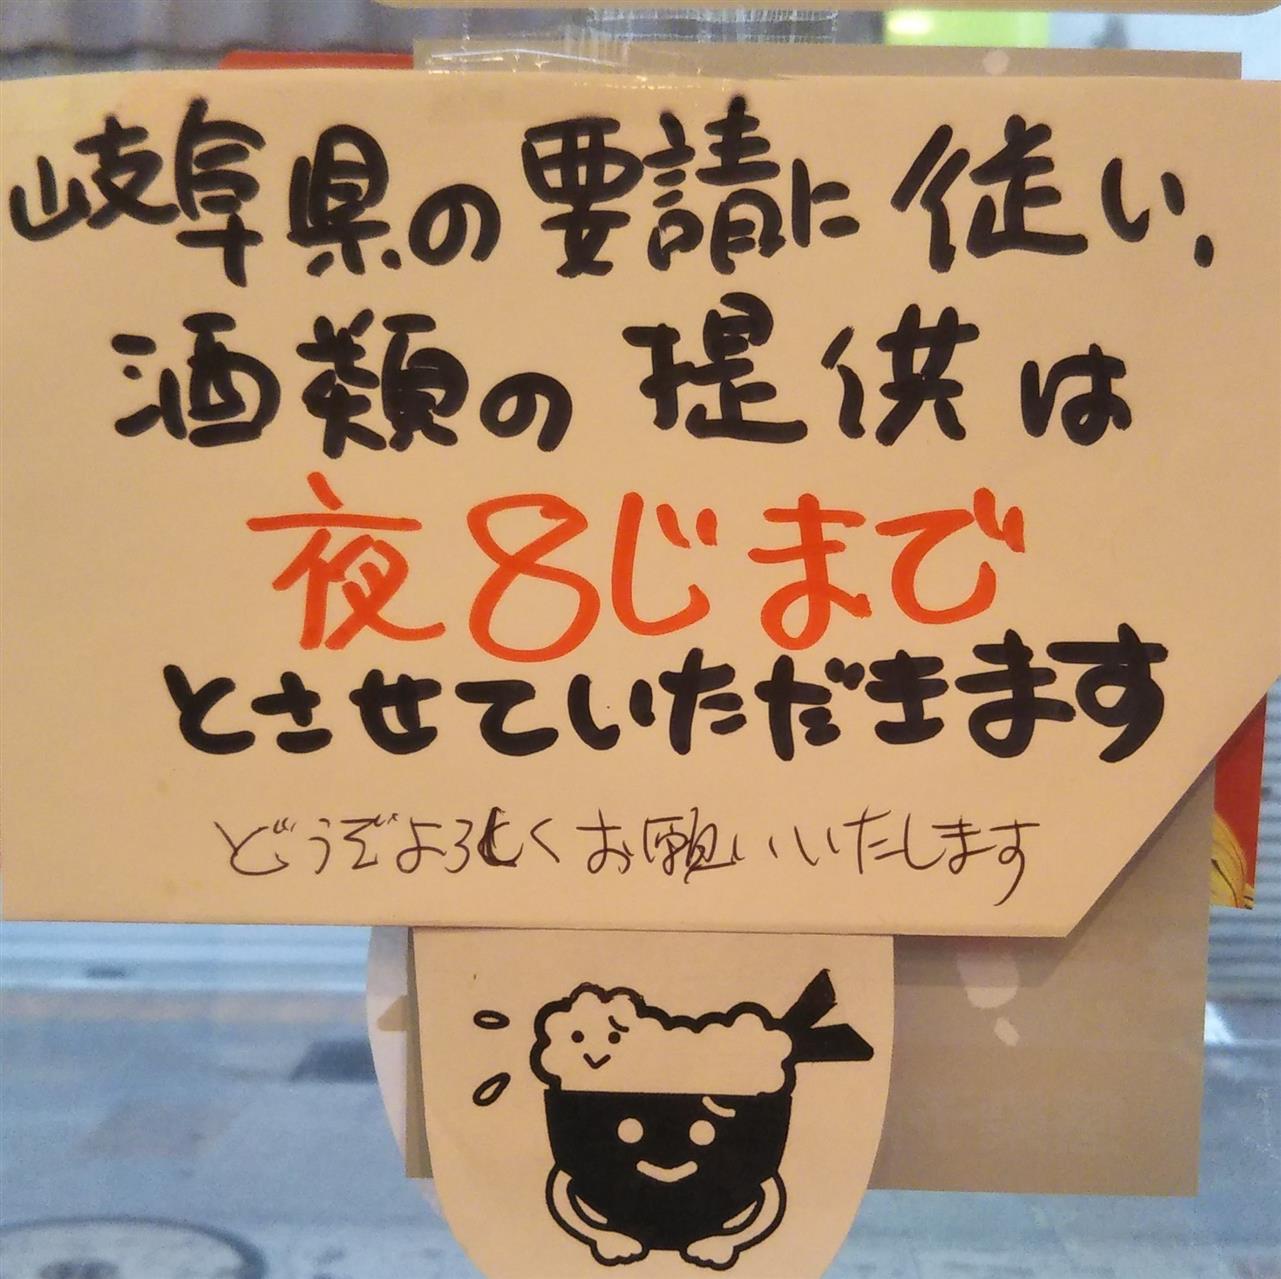 岐阜県の要請に従い、
酒類の提供は
夜8じまで
とさせていただきます
どうぞよろしくお願いいたします